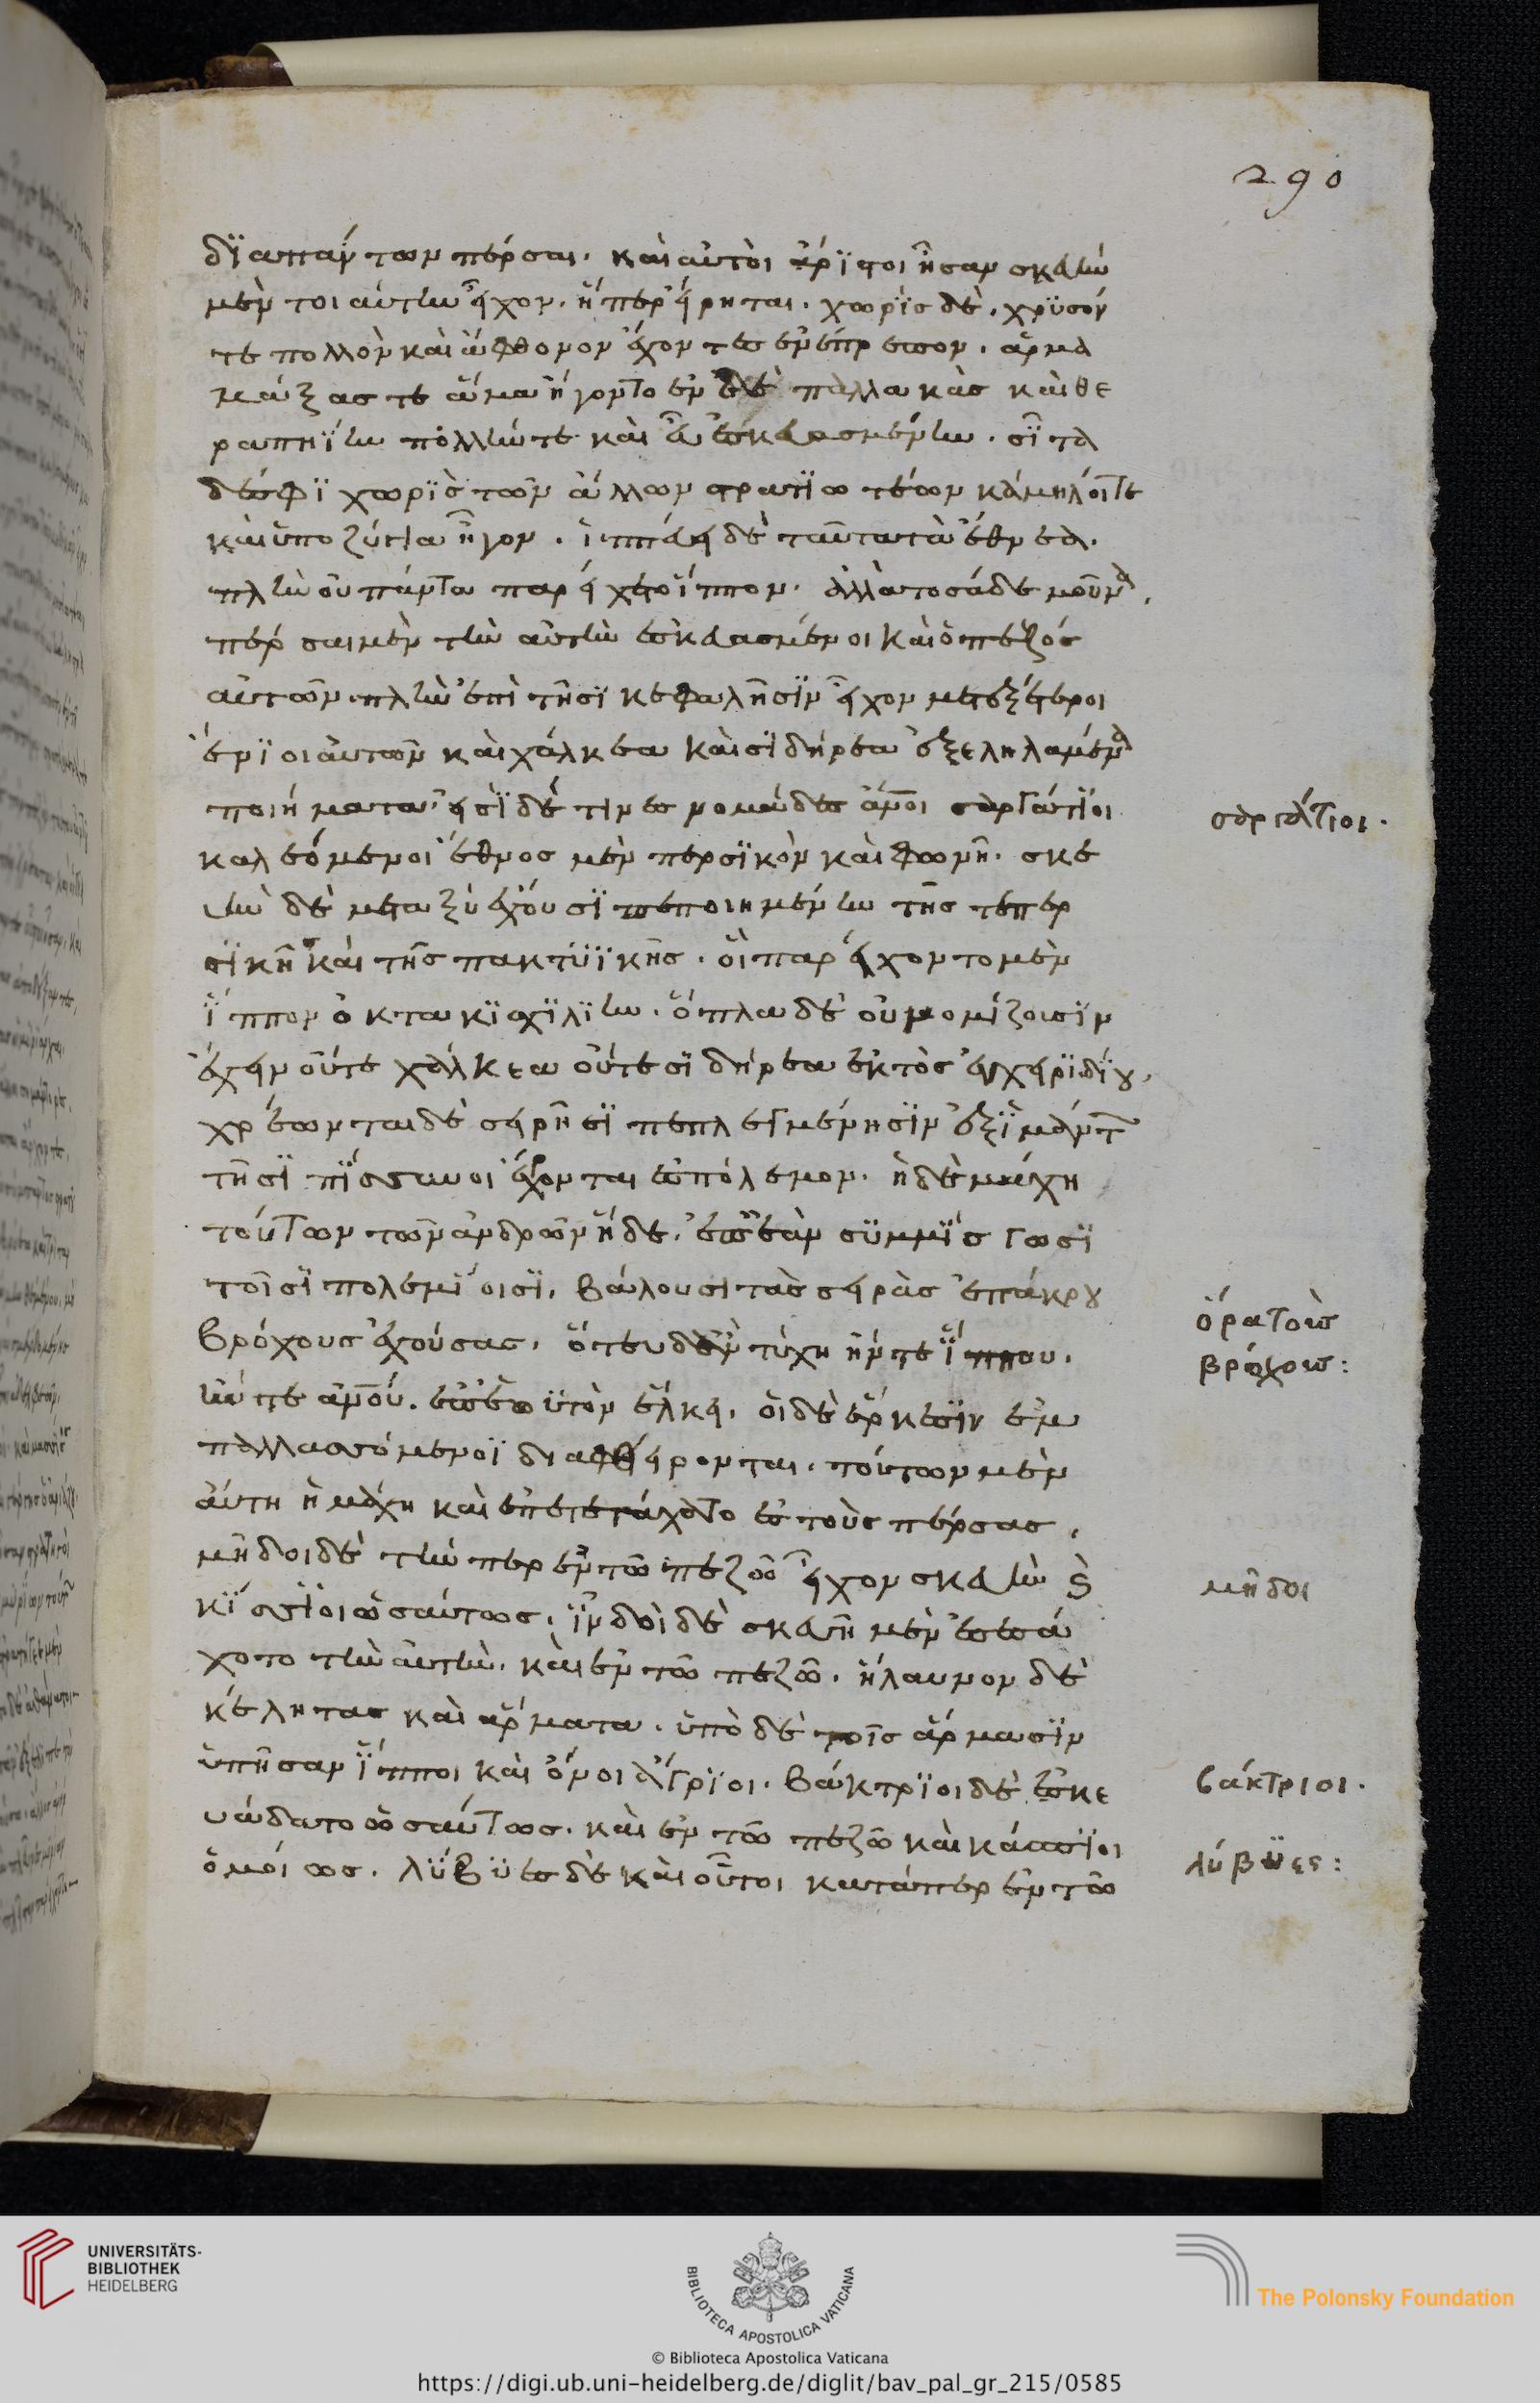 290
διαπάντων πέρσαι. καὶ αὐτοὶ ἄριστοι ἦσαν σκευὴν
μέν τοιαύτην εἶχον. ἥπερ εἴρηται. χωρὶς δὲ. χρυσόν
τε πολλὸν καὶ ἄφθονον ἔχοντες ἐνέπρεπον. ἁρμα
μάξας τε ἅμα ἤγοντο ἐν δὲ παλλακὰς καὶ θε
ραπηΐην πολλήν τε καὶ εὖ ἐσκευασμένην. σῖτα
δέ σφι χωρὶς τῶν ἄλλων στρατιωτέων κάμηλοί τε
καὶ ὑποζύγια ἦγον. ἱππεύει δὲ ταῦτα τὰ ἔθνεα.
πλὴν οὐ πάντα παρείχετο ἵππον. ἀλλὰ τοσάδε μοῦνα.
πέρσαι μὲν τὴν αὐτὴν ἐσκευασμένοι καὶ ὁ πεζός
αὐτῶν. πλὴν ἐπὶ τῆσι κεφαλῆσιν εἶχον μετεξέτεροι
ἔνιοι αὐτῶν καὶ χάλκεα καὶ σιδήρεα ἐξεληλαμένα
ποιήματα. εἰσὶ δέ τινες νομάδες ἄνοι σαργάτιοι
καλεόμενοι ἔθνος μὲν περσικὸν καὶ φωνῇ. σκε
υὴν δὲ μεταξὺ ἔχουσι πεποιημένην τῆς τε περ
σικῆς καὶ τῆς πακτυϊκῆς. οἳ παρείχοντο μὲν
ἵππον ὀκτακισχιλίην. ὅπλα δὲ οὐ νομίζουσιν
ἔχειν οὔτε χάλκεα οὔτε σιδήρεα ἐκτὸς ἐγχειριδίου.
χρέωνται δὲ σειρῇσι πεπλεγμένησιν ἐξ ἱμάντων
τῇσι πίσυνοι ἔρχονται ἐς πόλεμον. ἡ δὲ μάχη
τούτων τῶν ἀνδρῶν ἥδε. ἐπεὰν συμμίσγωσι
τοῖσι πολεμίοισι. βάλουσι τὰς σειρὰς ἐπ' ἄκρου
βρόχους ἐχούσας. ὅτευ δ' ἂν τύχη ἤν τε ἵππου.
ἤν τε ἀνοῦ. ἐπ' ἑωυτὸν ἕλκει. οἱ δὲ ἐν ἕρκεσιν ἐμ
παλλασσόμενοι διαφθείρονται. τούτων μὲν
αὕτη ἡ μάχη καὶ ἐπετετάχατο ἐς τοὺς πέρσας.
μῆδοι δὲ τήν περ ἐν τῷ πεζῷ εἶχον σκευὴν καὶ
κίσσιοι ὡσαύτως. ἰνδοὶ δὲ σκευῇ μὲν ἐσεσά
χατο τῇ αὐτῇ. καὶ ἐν τῷ πεζῷ. ἤλαυνον δὲ
κέλητας καὶ ἅρματα. ὑπὸ δὲ τοῖς ἅρμασιν
ὑπῆσαν ἵπποι καὶ ὄνοι ἄγριοι. βάκτριοι δὲ ἐσκε
υάδατο ὡσαύτως. καὶ ἐν τῷ πεζῷ καὶ κάσπιοι
ὁμοίως. λύβυες δὲ καὶ οὗτοι κατάπερ ἐν τῷ
σαργάτιοι.
ὅρα τοὺς
βρόχους:
μῆδοι
βάκτριοι.
λύβυες:
UNIVERSITÄTS-
BIBLIOTHEK
HEIDELBERG
BIBLIOTECA APOSTOLICA VATICANA
© Biblioteca Apostolica Vaticana
The Polonsky Foundation
https://digi.ub.uni-heidelberg.de/diglit/bav_pal_gr_215/0585